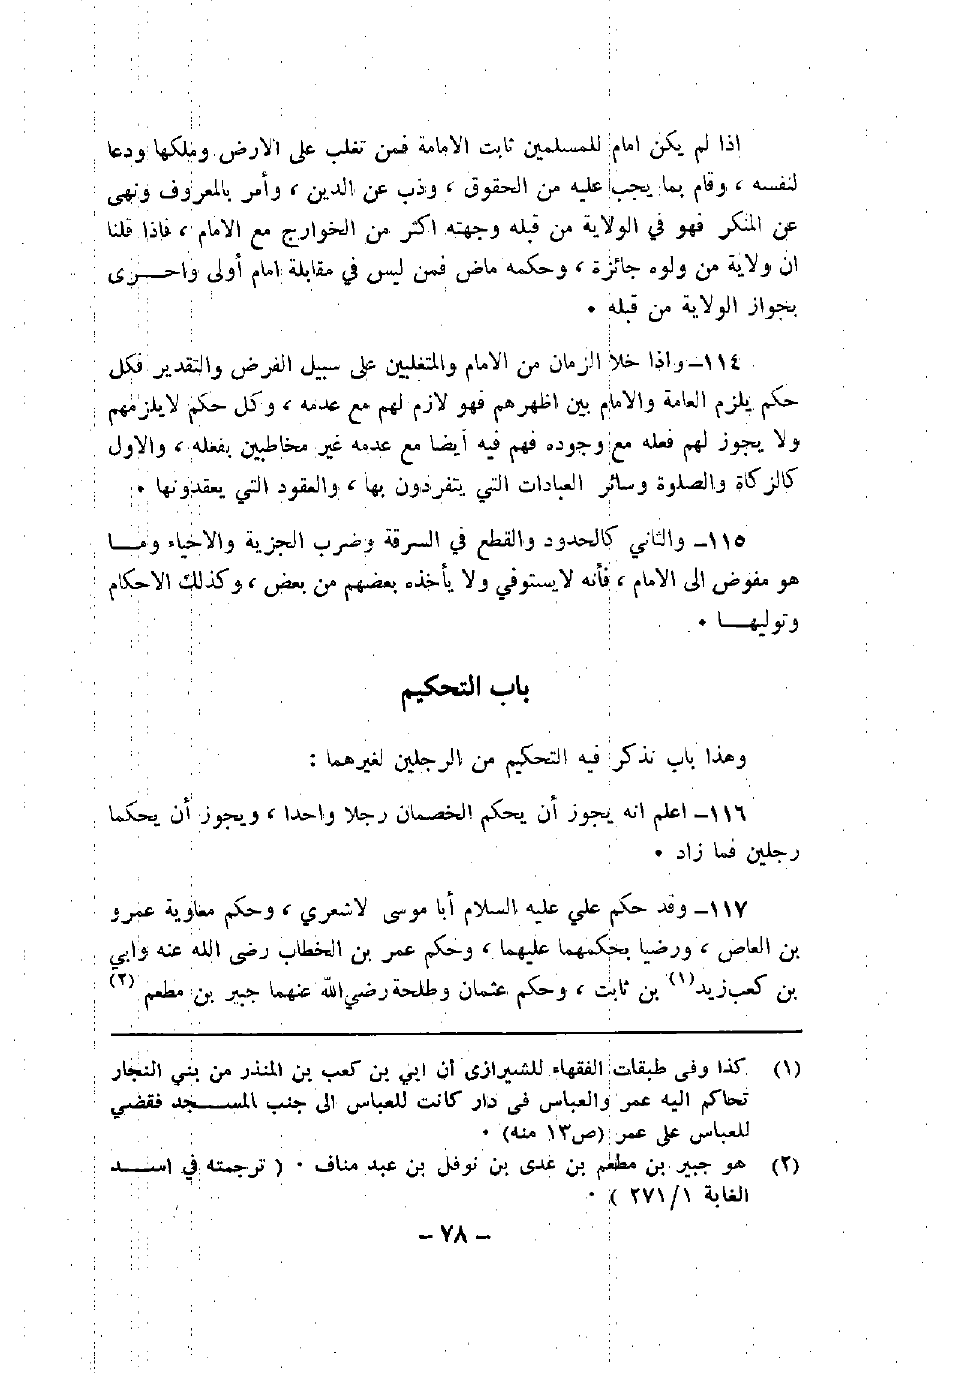 اذا لم يكن امام للمسلمين ثابت الامامة فمن تغلب على الارض وملكها ودعا
لنفسه ، وقام بما يجب عليه من الحقوق ، وذب عن الدين ، وأمر بالمعروف ونهى
عن المنكر فهو في الولاية من قبله وجهته اكثر من الخوارج مع الامام ، فاذا قلنا
ان ولاية من ولوه جائزة ، وحكمه ماض فمن ليس في مقابلة امام أولى واحـــرى
بجواز الولاية من قبله •
١١٤ـ واذا خلا الزمان من الامام والمتغلبين على سبيل الفرض والتقدير فكل
حكم يلزم العامة والامام بين اظهرهم فهو لازم لهم مع عدمه ، وكل حكم لايلزمهم
ولا يجوز لهم فعله مع وجوده فهم فيه أيضا مع عدمه غير مخاطبين بفعله ، والاول
كالزكاة والصلوة وسائر العبادات التي يتفردون بها ، والعقود التي يعقدونها •
١١٥ـ والثاني كالحدود والقطع في السرقة وضرب الجزية والاحياء ومـــا
هو مفوض الى الامام ، فأنه لايستوفي ولا يأخذه بعضهم من بعض ، وكذلك الاحكام
وتوليهـــا •
باب التحكيم
وهذا باب نذكر فيه التحكيم من الرجلين لغيرهما :
١١٦ـ اعلم انه يجوز أن يحكم الخصمان رجلا واحدا ، ويجوز أن يحكما
رجلين فما زاد •
١١٧ـ وقد حكم علي عليه السلام أبا موسى لاشعري ، وحكم معاوية عمرو
بن العاص ، ورضيا بحكمهما عليهما ، وحكم عمر بن الخطاب رضى الله عنه وابي
بن كعب زيد(١) بن ثابت ، وحكم عثمان وطلحة رضي الله عنهما جبير بن مطعم (٢)
(١) كذا وفى طبقات الفقهاء للشيرازى أن ابي بن كعب بن المنذر من بني النجار
تحاكم اليه عمر والعباس فى دار كانت للعباس الى جنب المســـجد فقضي
للعباس على عمر (ص١٣ منه) •
(٢) هو جبير بن مطعم بن عدى بن نوفل بن عبد مناف • ( ترجمته في اســـد
الغابة ٢٧١/١ ) •
– ٧٨ –